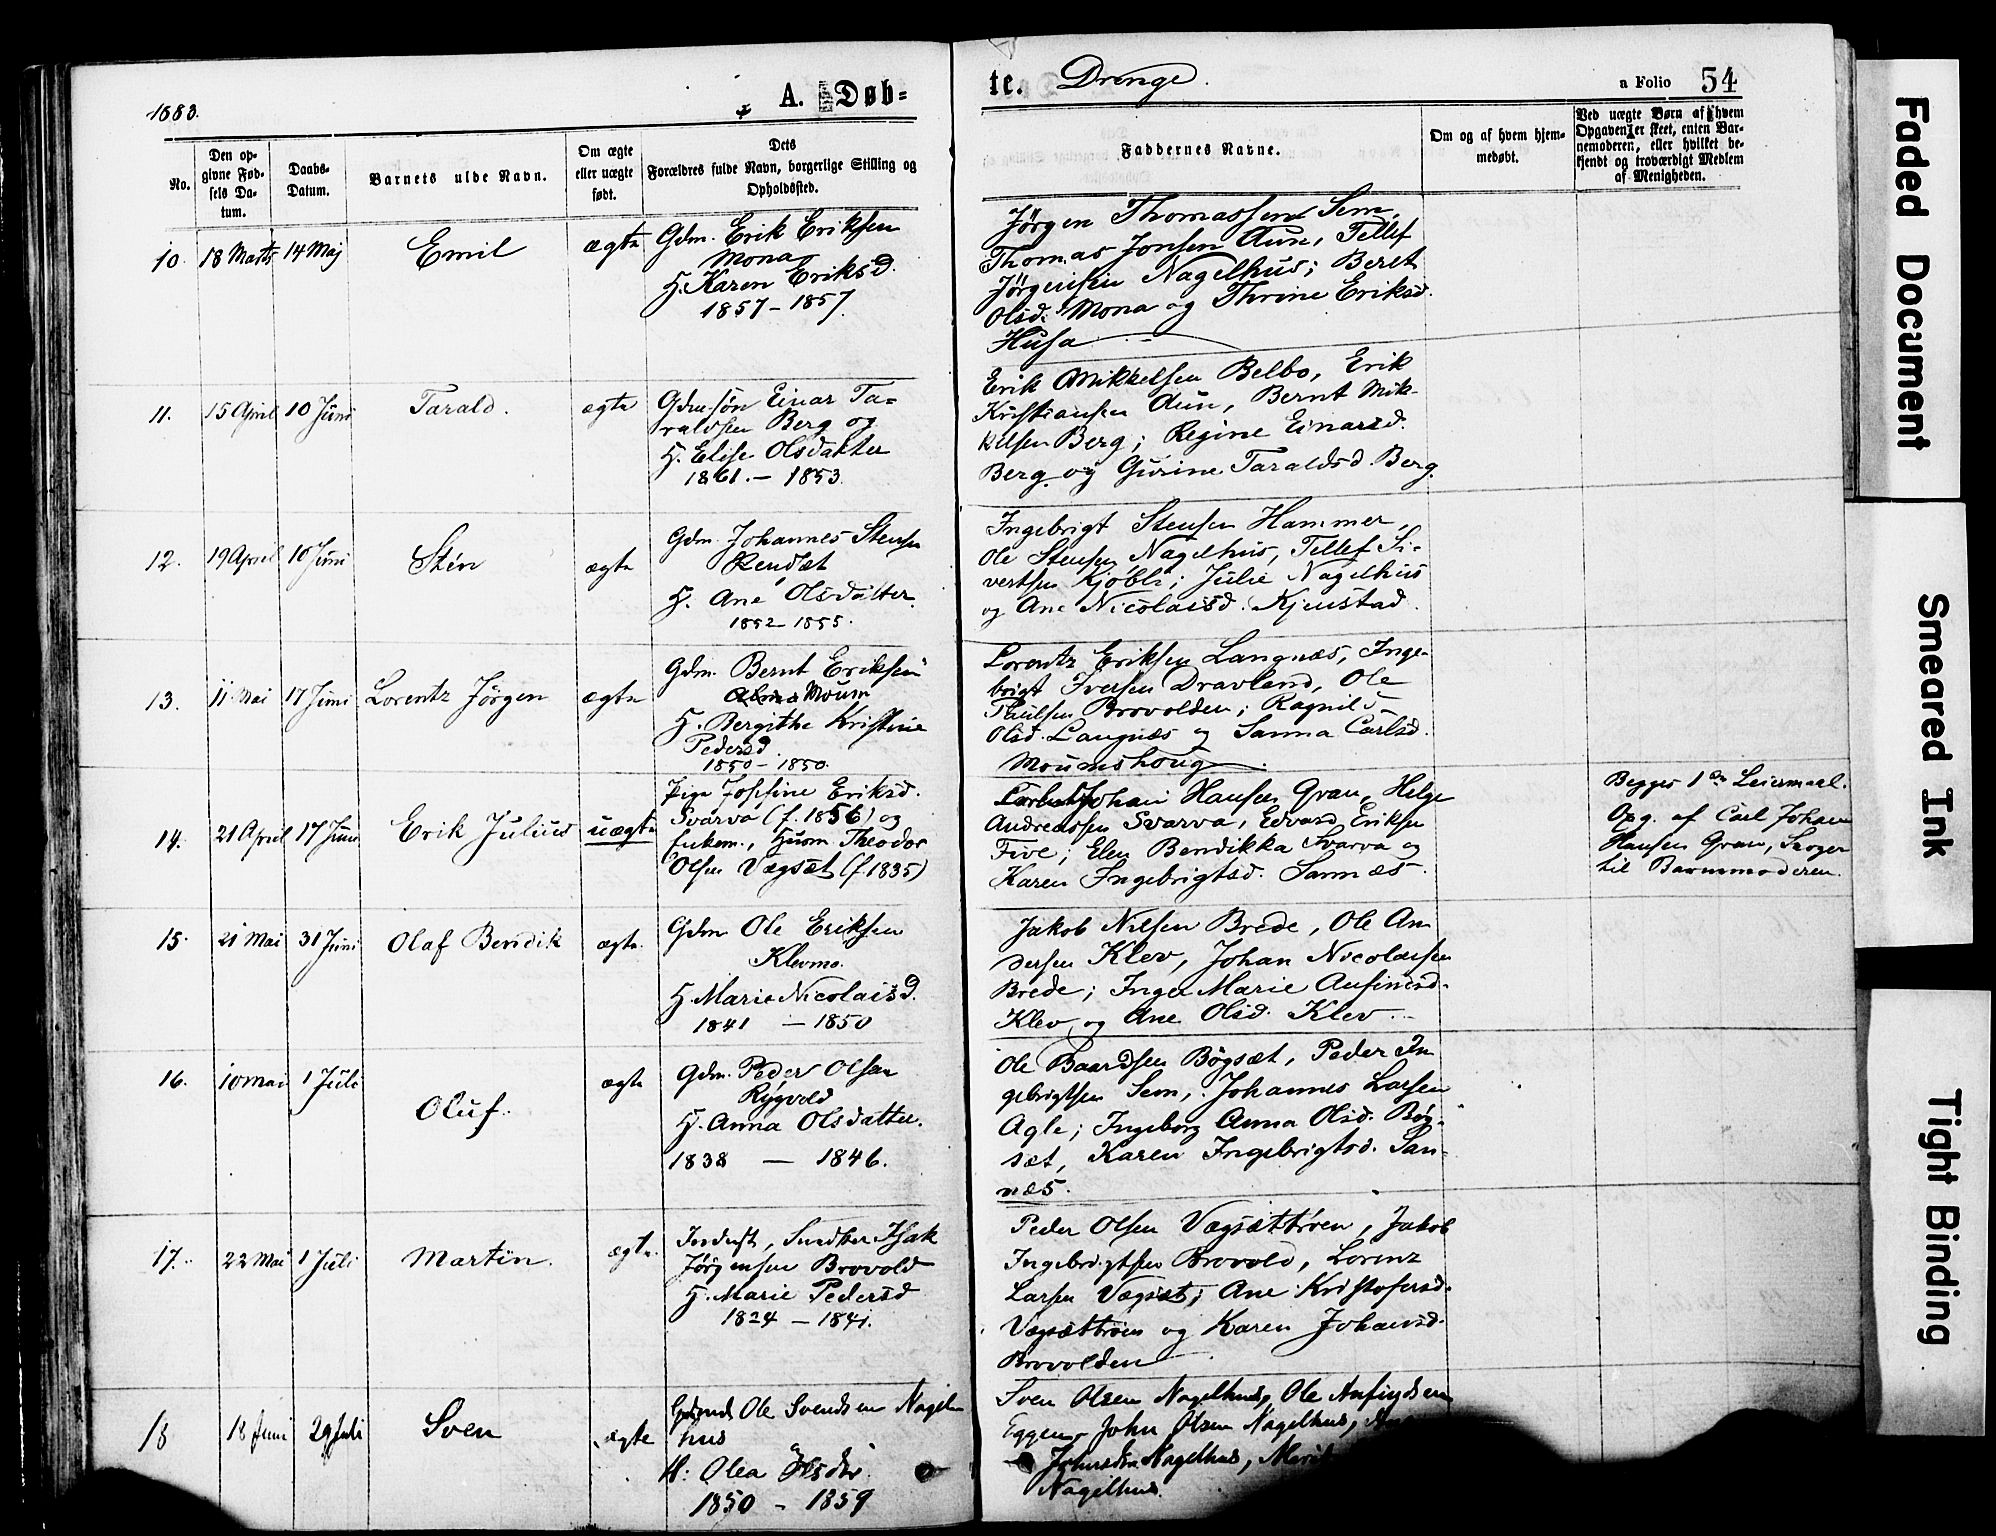 1883.
A. Døb-
te. Drenge.
a Folio 54
No.
Den op-
givne Fød-
sels Da-
tum.
Daabs-
Datum.
Barnets ulde Navn.
Om ægte
eller uægte
født.
Dets
Forældres fulde Navn, borgerlige Stilling og
Opholdssted.
Faddernes Navne.
Om og af hvem hjem-
medøbt.
Ved uægte Børn af hvem
Opgaven er skeet, enten Bar-
nemoderen, eller hvilket be-
kjendt og troværdigt Medlem
af Menigheden.
10. 18 Marts 14 Maj Emil ægte
Gdm. Erik Eriksen
Mona
H. Karen Eriksd.
1857 - 1857.
Jørgen Thomassen Sem,
Thomas Jonsen Aun, Tellef
Jørgensen Nagelhus; Beret
Olsd. Mona og Thrine Eriksd.
Husa
11. 15 April 10 Juni Tarald. ægte
Gdm.søn Einar Ta-
raldsen Berg og
H. Elise Olsdatter
1861. - 1853.
Erik Mikkelsen Belbo, Erik
Kristiansen Aun, Bernt Mik-
kelsen Berg; Regine Einarsd.
Berg og Gurine Taraldsd. Berg.
12. 19 April 10 Juni Sten ægte
Gdm. Johannes Stensen
Rendsæt
H. Ane Olsdatter.
1852 - 1855.
Ingebrigt Stensen Hammer,
Ole Stensen Nagelhus, Tellef Si-
vertsen Kjøbli; Julie Nagelhus
og Ane Nicolaisd. Kjenstad.
13. 11 Mai 17 Juni Lorentz Jørgen ægte
Gdm. Bernt Eriksen
Moum
H. Bergithe Kristine
Pedersd.
1850 - 1850.
Lorentz Eriksen Langnæs, Inge-
brigt Iversen Dravland, Ole
Paulsen Brovolden; Ragnild
Olsd. Langnæs og Sanna Carlsd.
Moumshoug.
14. 21 April 17 Juni Erik Julius uægte
Pige Josefine Eriksd.
Svarva (f. 1856) og
Enkem., Husm. Theodor
Olsen Vægsæt (f. 1835)
Johan Hansen Gran, Helge
Andreassen Svarva, Edvard Eriksen
Five; Elen Bendikka Svarva og
Karen Ingebrigtsd. Sannæs.
Begges 1ste Leiermaal.
Opg. af Carl Johan
Hansen Gran, Svoger
til Barnemoderen.
15. 21 Mai 31 Juni Olaf Bendik ægte.
Gdm Ole Eriksen
Klevmo.
H. Marie Nicolaisd.
1841 - 1850
Jakob Nilsen Brede, Ole An-
dersen Klev, Johan Nicolaisen
Brede; Inger Marie Anfinsd.
Klev og Ane Olsd. Klev.
16. 10 Mai 1 Juli Oluf. ægte
Gdm. Peder Olsen
Rygvold
H. Anna Olsdatter.
1838 - 1846.
Ole Baardsen Bøgsæt, Peder In-
gebrigtsen Sem, Johannes Larsen
Agle; Ingeborg Anna Olsd. Bøg-
sæt, Karen Ingebrigtsd. San-
næs.
17. 22 Mai 1 Juli Martin. ægte.
Inderst, Snedker Isak
Jørgensen Brovold
H. Marie Pedersd
1824 - 1841.
Peder Olsen Vægsættrøen, Jakob
Ingebrigtsen Brovold, Lorenz
Larsen Vægsæt; Ane Kristofersd.
Vægsættrøen og Karen Johansd.
Brovolden
18 18 Juni 29 Juli Sven ægte
Ole Svendsen Nagel
hus
H: Olea Olsdtr.
1850 - 1859
Sven Olsen Nagelhus, Ole Anfindsen
Eggen, John Olsen Nagelhus,
Johnsdtr. Nagelhus,
Nagelhus.
Faded Document
Smeared Ink
Tight Binding